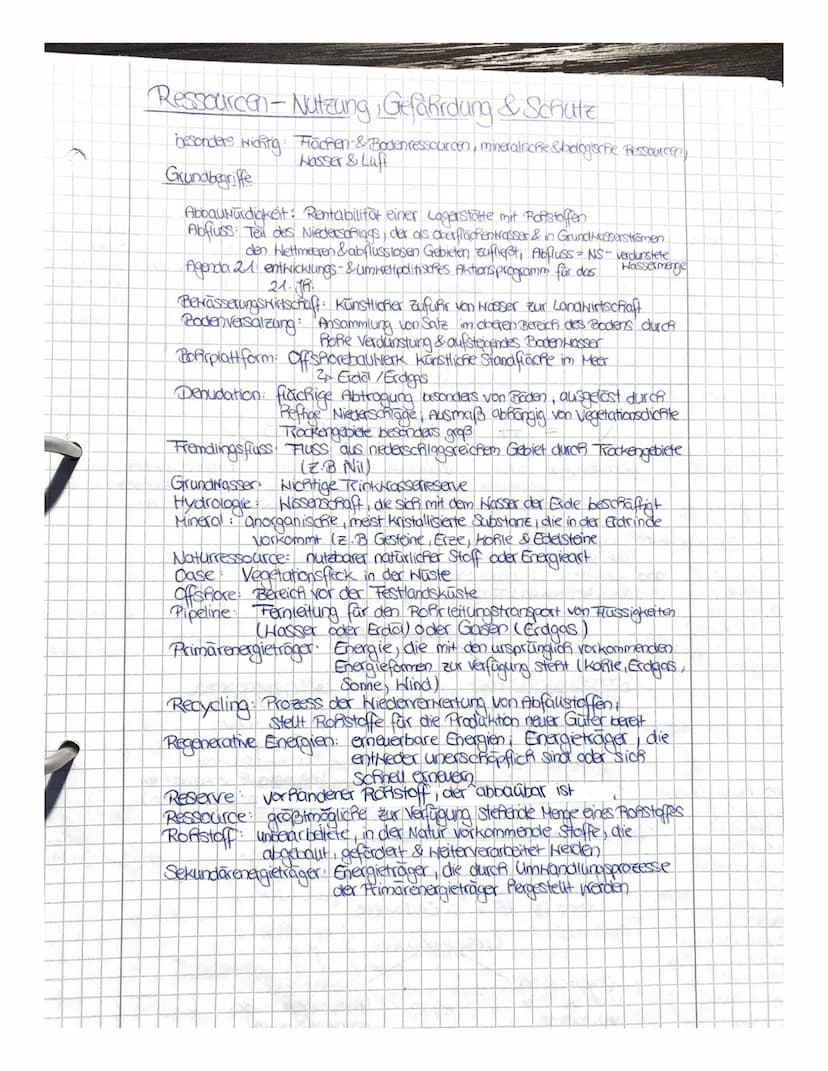 Ressourcen - Nutzung, Gefährdung & Schutz
besonders wichtig: Flächen- & Bodenressourcen, mineralische & biologische Ressourcen,
Wasser & Luft
Grundbegriffe
Abbauwürdigkeit: Rentabilität einer Lagerstätte mit Rohstoffen
Abfluss: Teil des Niederschlags, der als Oberflächenwasser & in Grundwasserströmen
den Weltmeeren & abflusslosen Gebieten zufließt, Abfluss = NS - verdunstete
Wassermenge
Agenda 21: entwicklungs- & umweltpolitisches Aktionsprogramm für das
21. Jh.
Bewässerungswirtschaft: künstlicher Zufuhr von Wasser zur Landwirtschaft
Bodenversalzung: Ansammlung von Salz im oberen Bereich des Bodens durch
hohe Verdunstung & aufsteigendes Bodenwasser
Bohrplattform: Offshorebauwerk künstliche Standfläche im Meer
↳ Erdöl / Erdgas
Denudation: flächige Abtragung besonders von Böden, ausgelöst durch
heftige Niederschläge, Ausmaß abhängig von Vegetationsdichte
Trockengebiete besonders groß
Fremdlingsfluss: Fluss aus niederschlagsreichem Gebiet durch Trockengebiete
(z.B Nil)
Grundwasser: wichtige Trinkwasserreserve
Hydrologie: Wissenschaft, die sich mit dem Wasser der Erde beschäftigt
Mineral: anorganische, meist kristallisierte Substanz, die in der Erdrinde
vorkommt (z.B Gesteine, Erze, Kohle & Edelsteine
Naturressource: nutzbarer natürlicher Stoff oder Energieart
Oase: Vegetationsfleck in der Wüste
Offshore: Bereich vor der Festlandsküste
Pipeline: Fernleitung für den Rohrleitungstransport von Flüssigkeiten
(Wasser oder Erdöl) oder Gasen (Erdgas)
Primärenergieträger: Energie, die mit den ursprünglich vorkommenden
Energieformen zur Verfügung steht (Kohle, Erdgas,
Sonne, Wind)
Recycling: Prozess der Wiederverwertung von Abfallstoffen,
stellt Rohstoffe für die Produktion neuer Güter bereit
Regenerative Energien: erneuerbare Energien; Energieträger, die
entweder unerschöpflich sind oder sich
schnell erneuern
Reserve: vorhandener Rohstoff, der abbaubar ist
Ressource: größtmögliche zur Verfügung stehende Menge eines Rohstoffes
Rohstoff: unbearbeitete, in der Natur vorkommende Stoffe, die
abgebaut, gefördert & weiterverarbeitet werden
Sekundärenergieträger: Energieträger, die durch Umwandlungsprozesse
der Primärenergieträger hergestellt werden